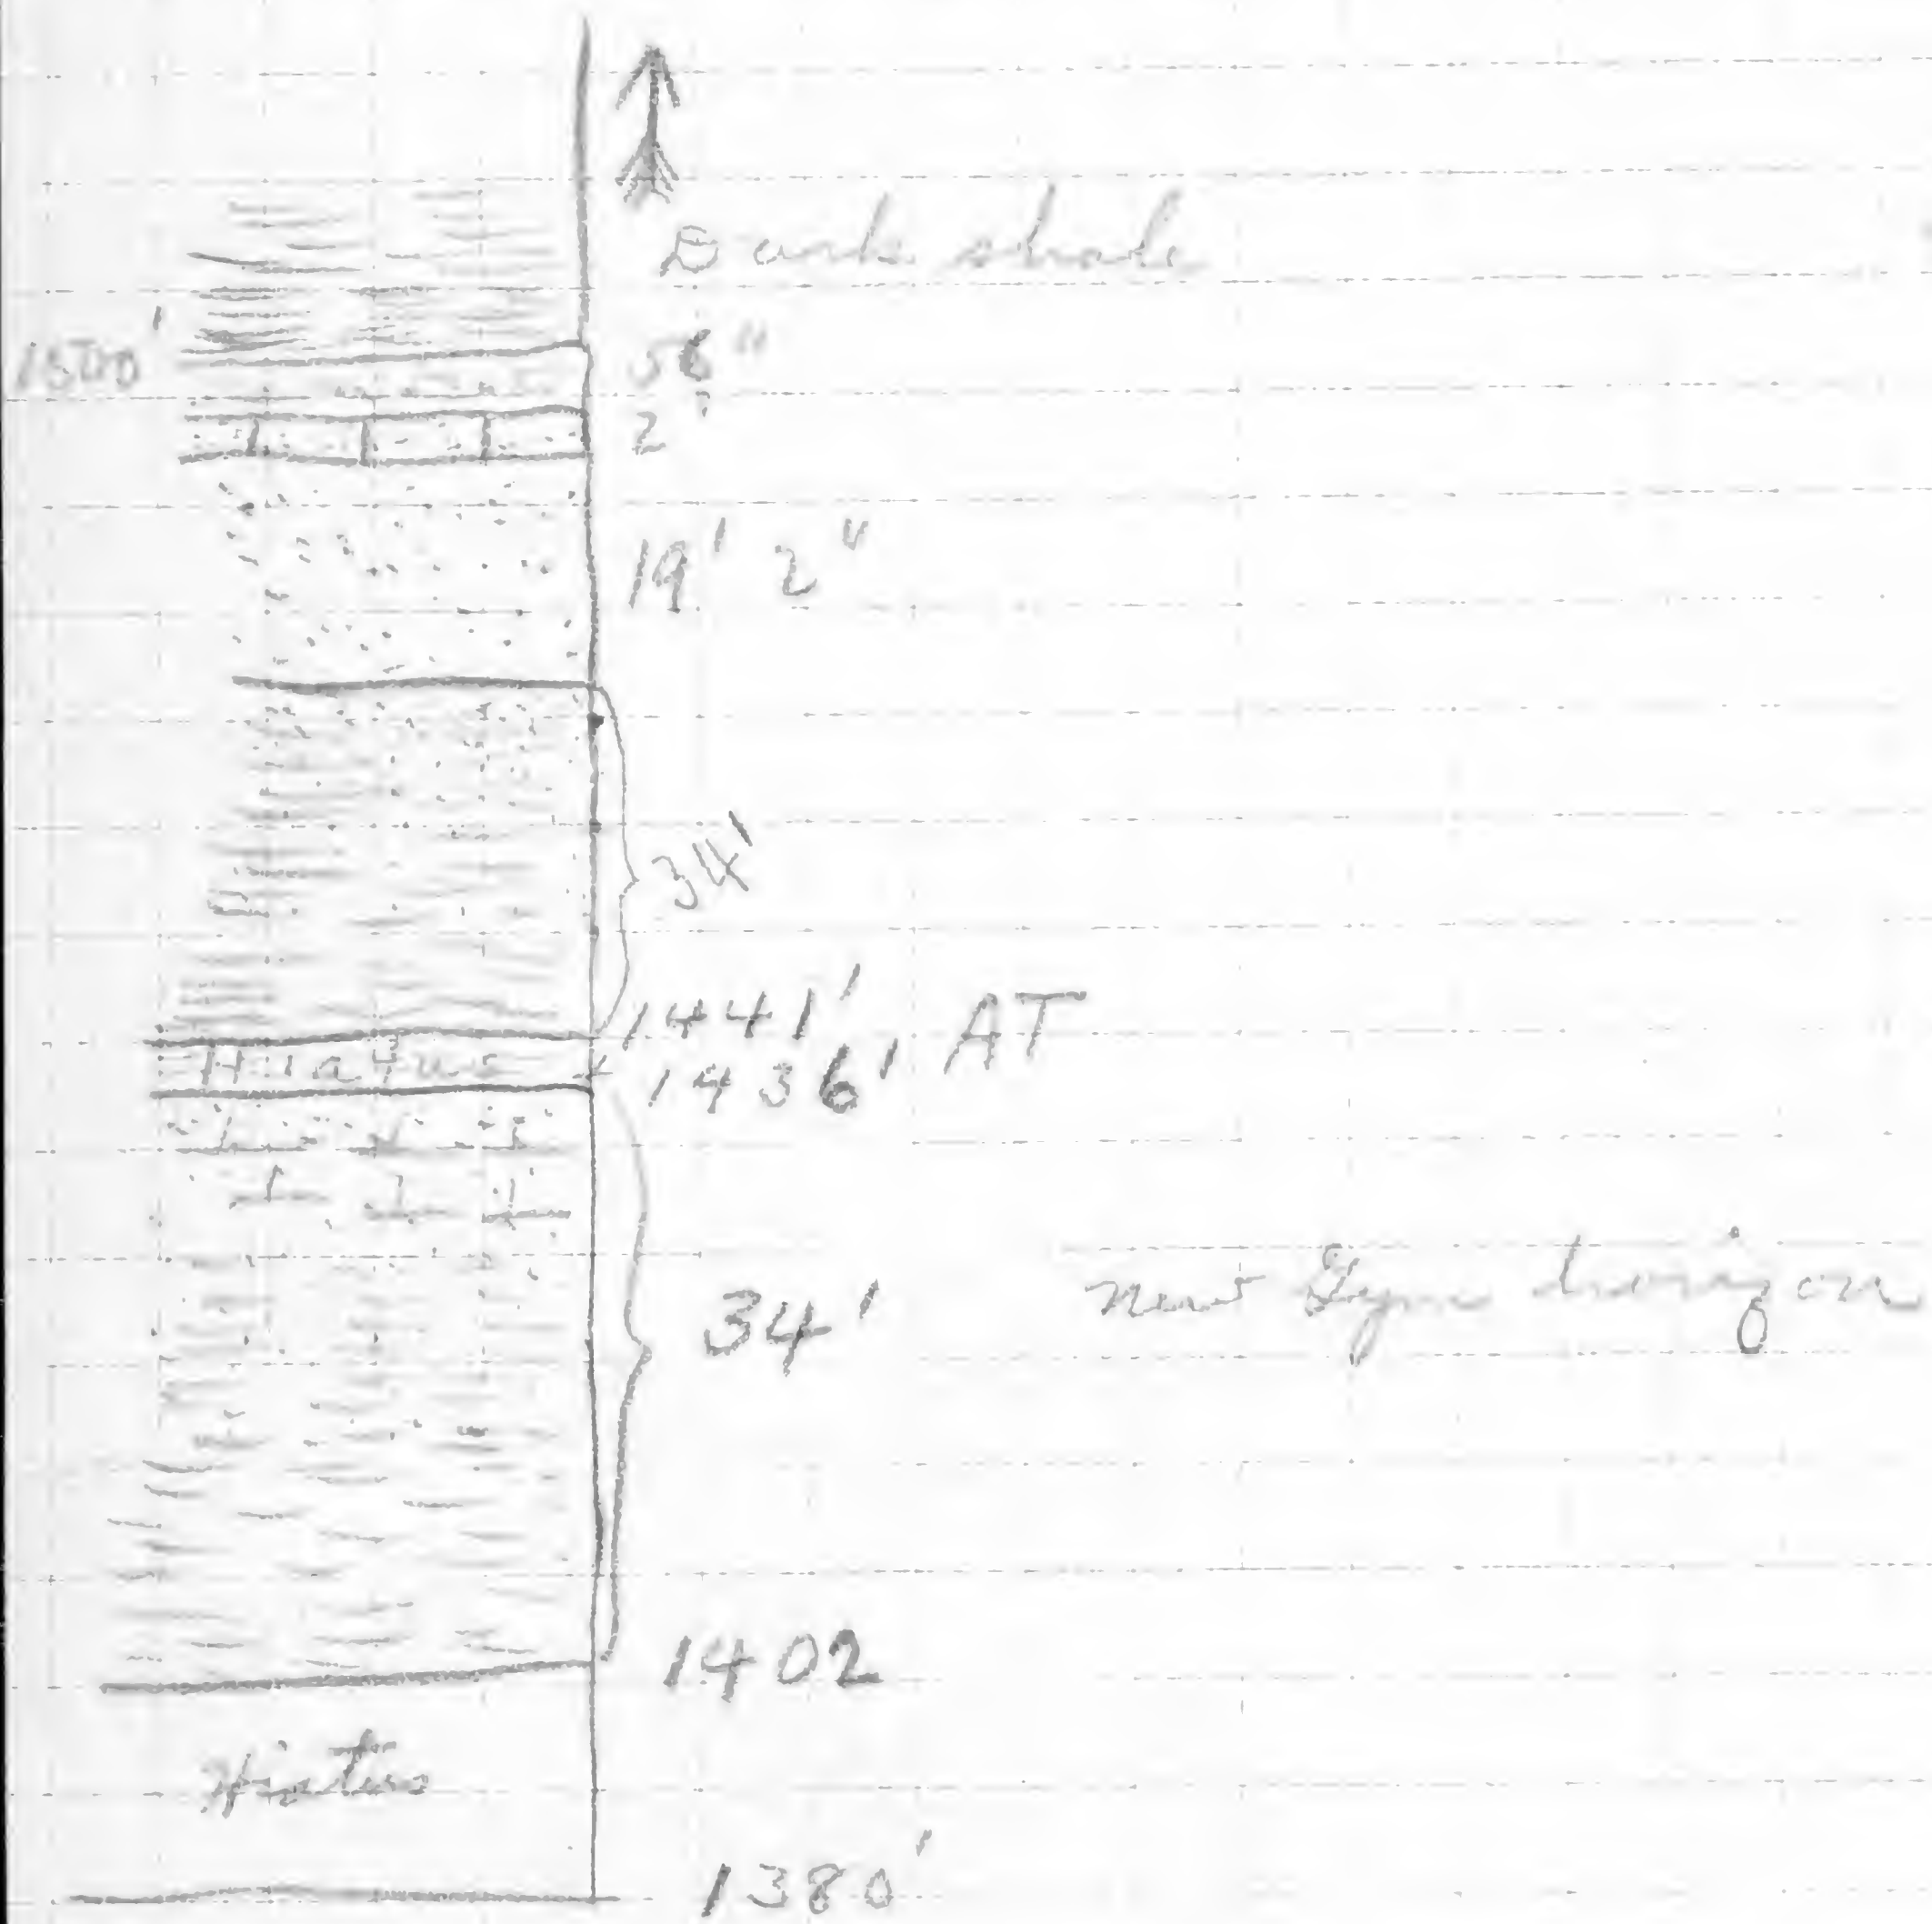 Dark shale
1500' 56"
2'
19' 2"
34'
1441' AT
Hiatus 1436'
34' new horizon
1402
Hiatus
1380'